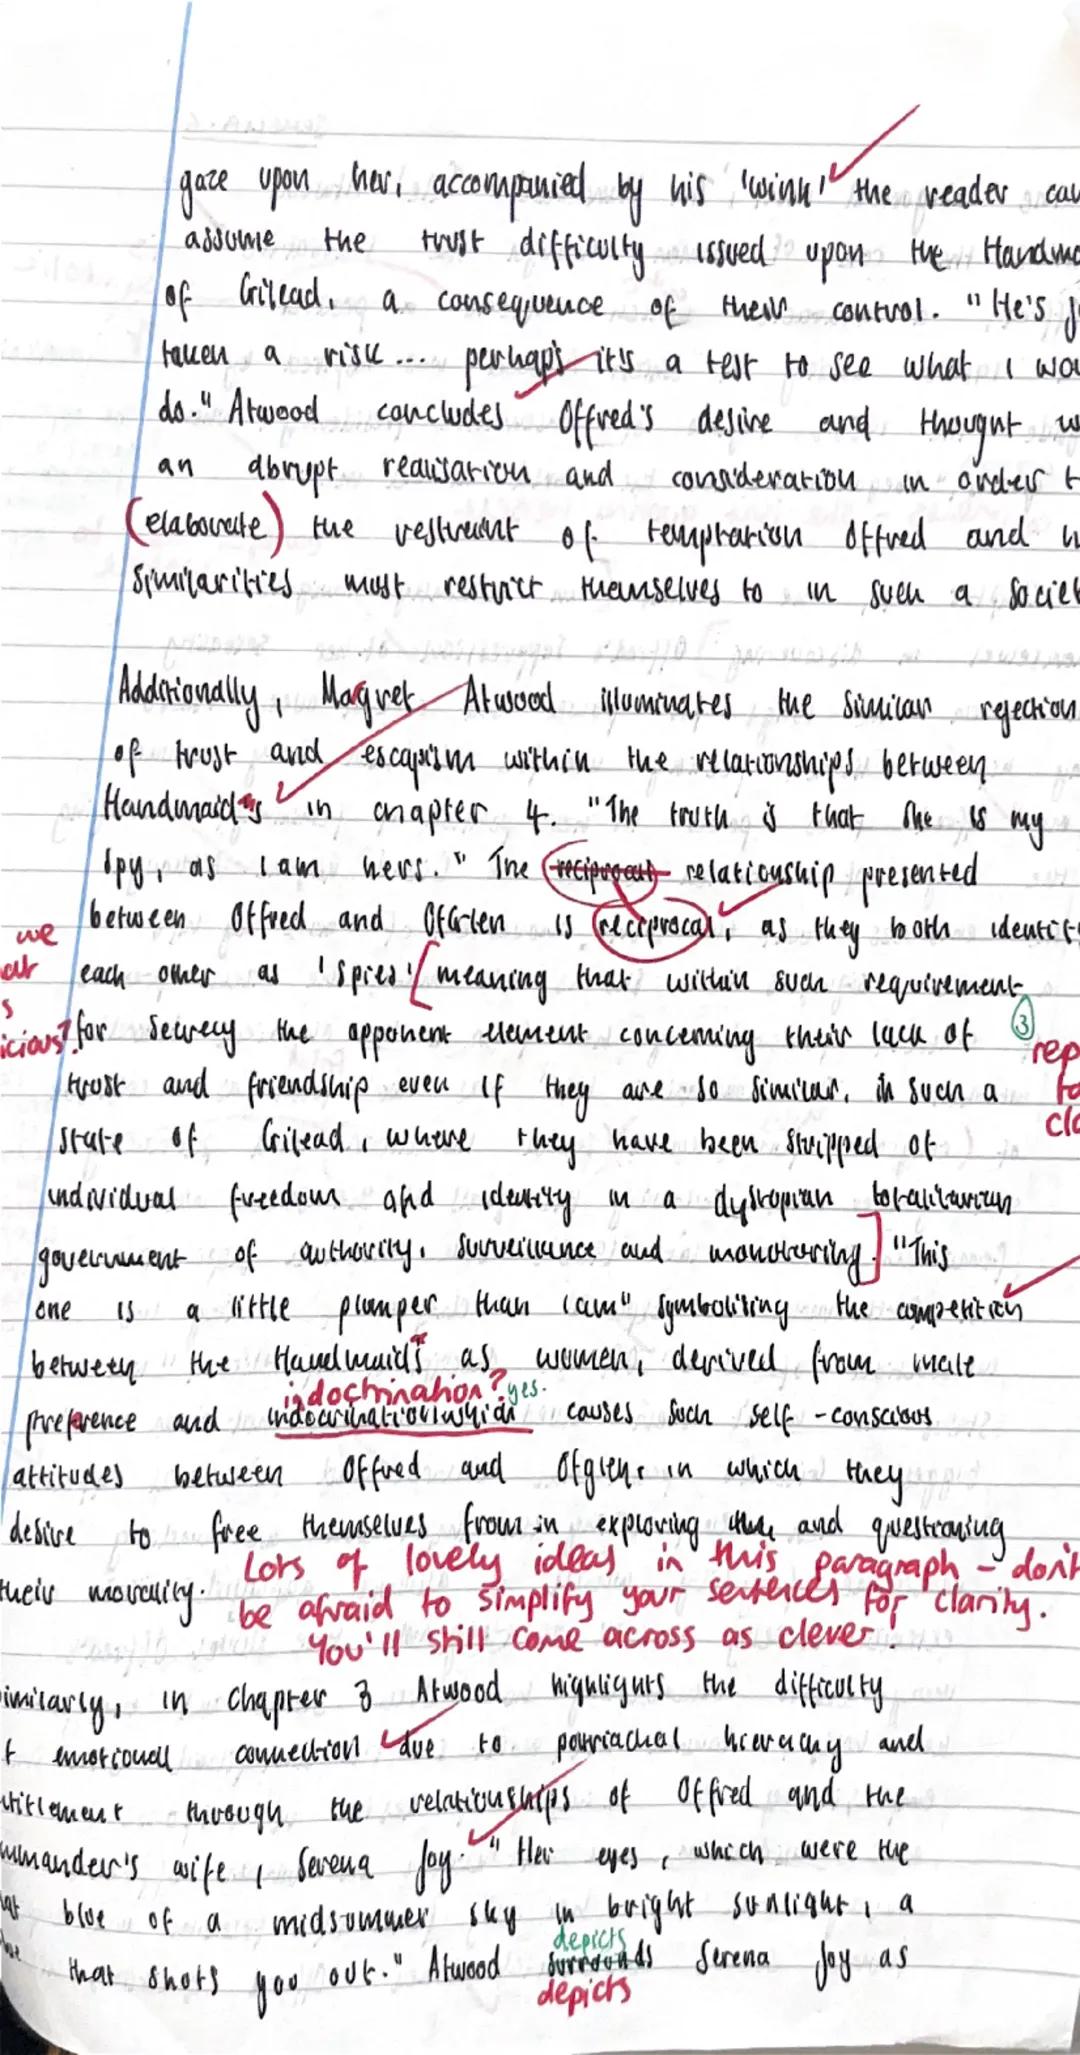 gaze upon her, accompanied by his 'wink' the reader can
assume the trust difficulty issued upon the Handma
of Gilead, a consequence of their control. "He's ju
taken a risk ... perhaps it's a test to see what I wou
do." Atwood concludes Offred's desire and thought w
an abrupt realisation and consideration in order t
(elaborate) the restraint of temptation Offred and h
similarities must restrict themselves to in such a societ
Additionally, Magret Atwood illuminates the similar rejection
of trust and escapism within the relationships between
Handmaid's in chapter 4. "The truth is that she is my
spy, as I am hers." The reciprocal relationship presented
between Offred and OfGlen is reciprocal, as they both identify
we
each other as 'spies' [meaning that within such requirement
icious? for secrecy the opponent element concerning their lack of
3
rep
trust and friendship even if they are so similar, in such a
fo
state of Gilead, where they have been stripped of
cla
individual freedom and identity in a dystopian totalitarian
government of authority, surveillance and monotoring.] "This
one is a little plumper than I am" symbolising the competition
between the Handmaids as women, derived from male
indoctrination? yes.
preference and indocrination which causes such self-conscious
attitudes between Offred and Ofglen, in which they
desire to free themselves from in exploring and questioning
their morality.
Lots of lovely ideas in this paragraph - don't
be afraid to simplify your sentences for clarity.
You'll still come across as clever!
imilarly, in Chapter 3 Atwood highlights the difficulty
f emotional connection due to patriachal hierachy and
ntitlement through the relationships of Offred and the
mmander's wife, Serena Joy. "Her eyes, which were the
blue of a midsummer sky in bright sunlight, a
depicts
that shots you out." Atwood surrounds Serena Joy as
depicts